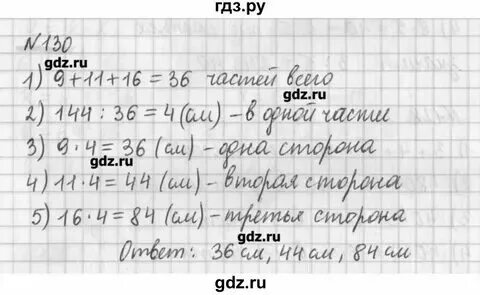 гдз.ру
№130
1) 9+11+16=36 частей всего
гдз.ру
2) 144:36=4(см)-в одной части
3) 9·4=36(см)-одна сторона
гдз.ру
4) 11·4=44(см)-вторая сторона
5) 16·4=84(см)-третья сторона
гдз.ру
Ответ: 36см, 44см, 84см
гдз.ру